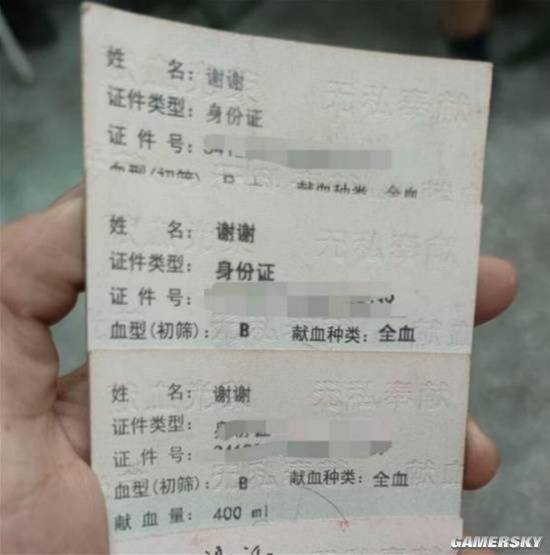 姓 名：谢谢
证件类型：身份证
证 件 号：
血型(初筛)：B 献血种类：全血
姓 名：谢谢
证件类型：身份证
证 件 号：
血型(初筛)：B 献血种类：全血
姓 名：谢谢
证件类型：身份证
证 件 号：
血型(初筛)：B 献血种类：全血
献 血 量：400 ml
无私奉献
无私奉献
无私奉献
GAMERSKY